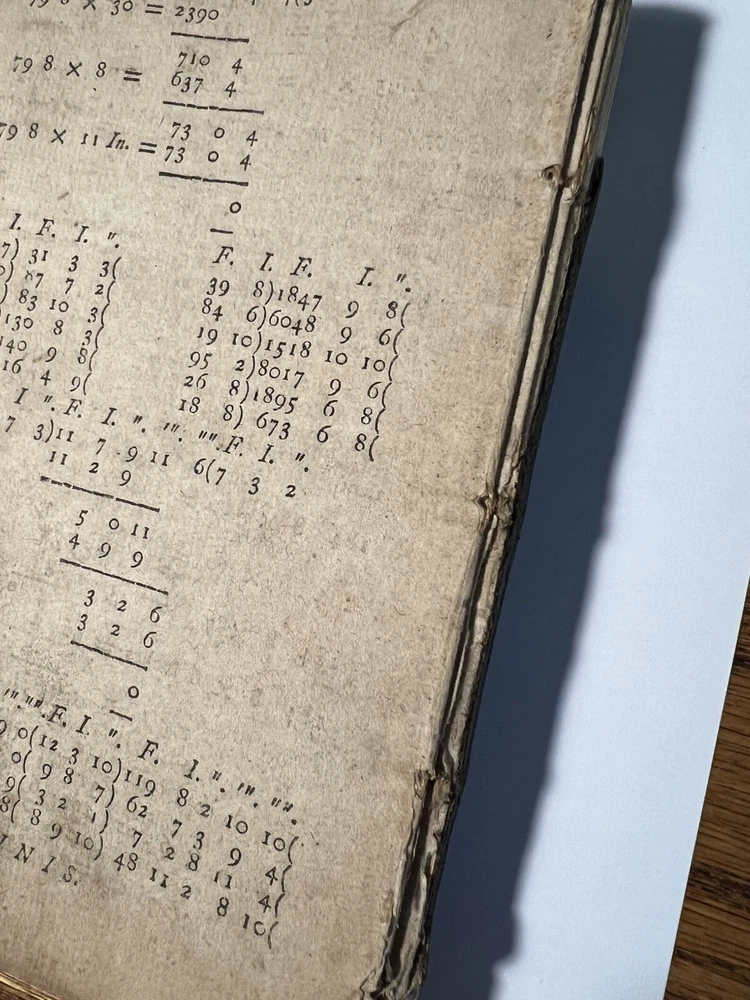 79 8 × 30 = 2390
710 4
79 8 × 8 = 637 4
73 0 4
79 8 × 11 In. = 73 0 4
0
I. F. I. ″.
7) 31 3 3(
0) 87 7 2(
) 83 10 3(
130 8 3(
140 9 8(
16 4 9(
F. I. F. I. ″.
39 8)1847 9 8(
84 6)6048 9 6(
19 10)1518 10 10(
95 2)8017 9 6(
26 8)1895 6 8(
18 8) 673 6 8(
I ″. F. I. ″. ‴. ″″. F. I. ″.
7 3)11 7 9 11 6(7 3 2
11 2 9
5 0 11
4 9 9
3 2 6
3 2 6
0
‴. ″″. F. I. ″. F. I. ″. ‴. ″″.
9 0(12 3 10)119 8 2 10 10(
0( 9 8 7) 62 7 3 9 4(
9( 3 2 1) 7 2 8 11 4(
8( 8 9 10) 48 11 2 8 10(
I N I S.